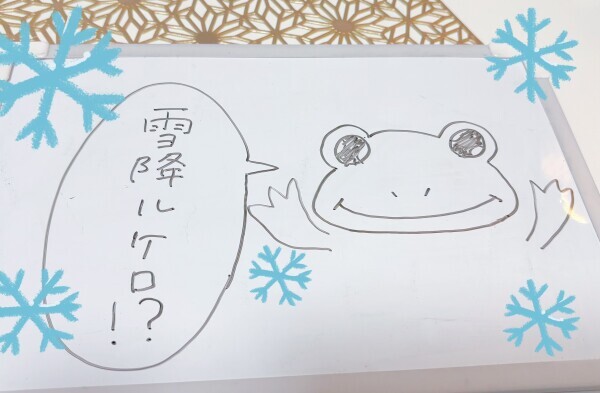 雪降ルケロ!?